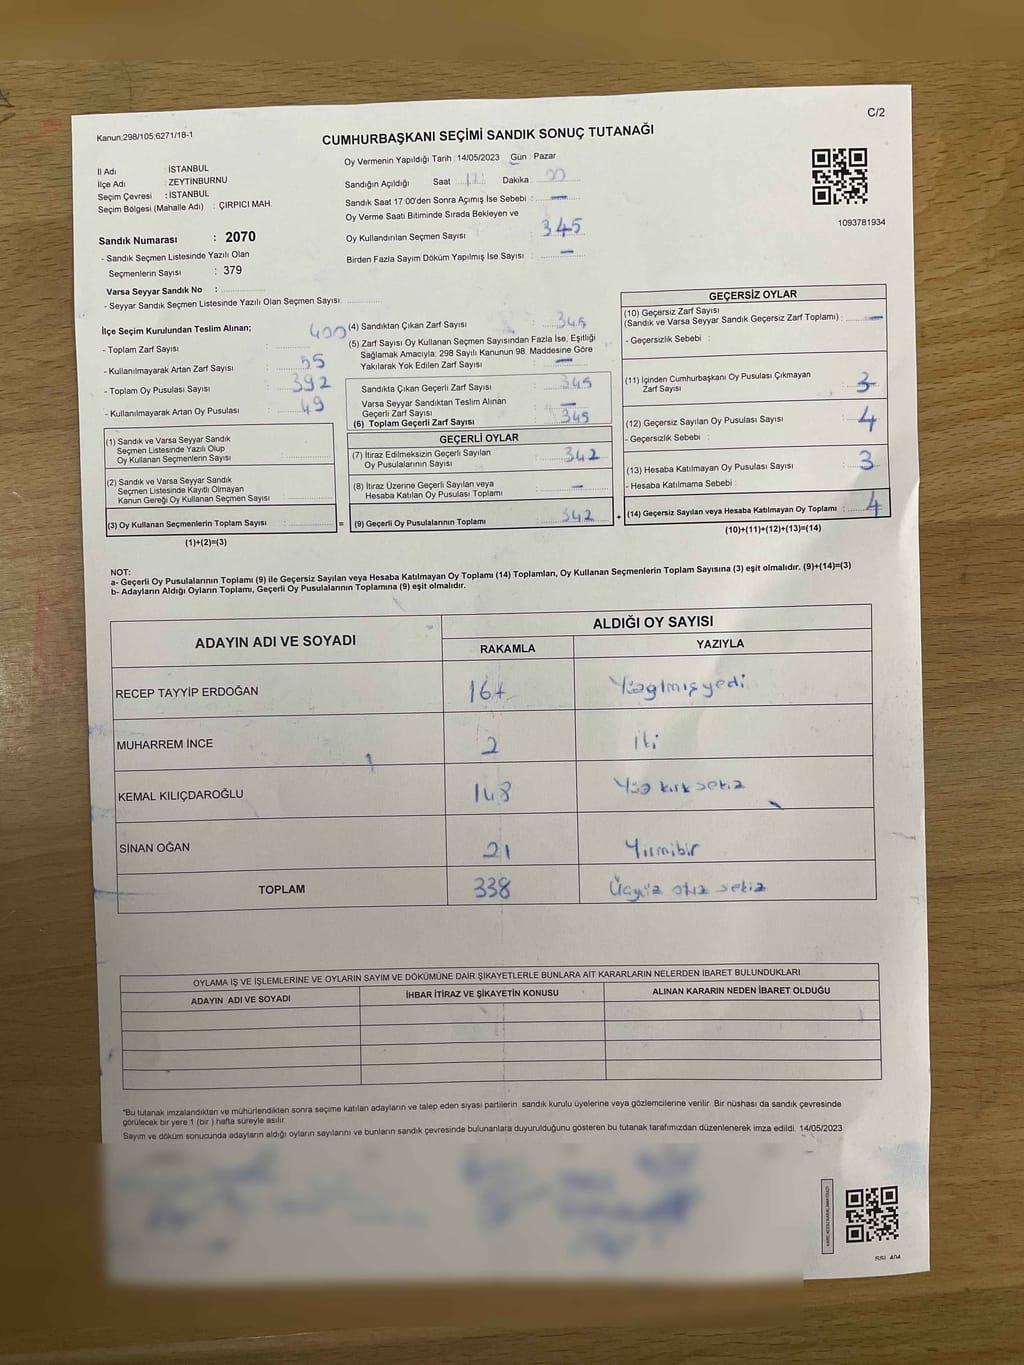 Kanun:298/105;6271/18-1
C/2
CUMHURBAŞKANI SEÇİMİ SANDIK SONUÇ TUTANAĞI
İl Adı : İSTANBUL
İlçe Adı : ZEYTİNBURNU
Seçim Çevresi : İSTANBUL
Seçim Bölgesi (Mahalle Adı) : ÇIRPICI MAH.
Oy Vermenin Yapıldığı Tarih : 14/05/2023 Gün : Pazar
Sandığın Açıldığı Saat Dakika
Sandık Saat 17:00'den Sonra Açımış İse Sebebi : —
Oy Verme Saati Bitiminde Sırada Bekleyen ve
Oy Kullandırılan Seçmen Sayısı 345
Birden Fazla Sayım Döküm Yapılmış İse Sayısı : —
1093781934
Sandık Numarası : 2070
- Sandık Seçmen Listesinde Yazılı Olan
Seçmenlerin Sayısı : 379
Varsa Seyyar Sandık No :
- Seyyar Sandık Seçmen Listesinde Yazılı Olan Seçmen Sayısı:
İlçe Seçim Kurulundan Teslim Alınan;
- Toplam Zarf Sayısı : 400
- Kullanılmayarak Artan Zarf Sayısı : 55
- Toplam Oy Pusulası Sayısı : 392
- Kullanılmayarak Artan Oy Pusulası : 49
(1) Sandık ve Varsa Seyyar Sandık
Seçmen Listesinde Yazılı Olup
Oy Kullanan Seçmenlerin Sayısı :
(2) Sandık ve Varsa Seyyar Sandık
Seçmen Listesinde Kayıtlı Olmayan
Kanun Gereği Oy Kullanan Seçmen Sayısı :
(3) Oy Kullanan Seçmenlerin Toplam Sayısı :
(1)+(2)=(3)
(4) Sandıktan Çıkan Zarf Sayısı : 345
(5) Zarf Sayısı Oy Kullanan Seçmen Sayısından Fazla İse, Eşitliği
Sağlamak Amacıyla; 298 Sayılı Kanunun 98. Maddesine Göre
Yakılarak Yok Edilen Zarf Sayısı : —
Sandıkta Çıkan Geçerli Zarf Sayısı : 345
Varsa Seyyar Sandıktan Teslim Alınan
Geçerli Zarf Sayısı : —
(6) Toplam Geçerli Zarf Sayısı : 345
GEÇERLİ OYLAR
(7) İtiraz Edilmeksizin Geçerli Sayılan
Oy Pusulalarının Sayısı : 342
(8) İtiraz Üzerine Geçerli Sayılan veya
Hesaba Katılan Oy Pusulası Toplamı : —
=
(9) Geçerli Oy Pusulalarının Toplamı : 342
+
GEÇERSİZ OYLAR
(10) Geçersiz Zarf Sayısı
(Sandık ve Varsa Seyyar Sandık Geçersiz Zarf Toplamı) : —
- Geçersizlik Sebebi :
(11) İçinden Cumhurbaşkanı Oy Pusulası Çıkmayan
Zarf Sayısı : 3
(12) Geçersiz Sayılan Oy Pusulası Sayısı : 4
- Geçersizlik Sebebi :
(13) Hesaba Katılmayan Oy Pusulası Sayısı : 3
- Hesaba Katılmama Sebebi :
(14) Geçersiz Sayılan veya Hesaba Katılmayan Oy Toplamı : 4
(10)+(11)+(12)+(13)=(14)
NOT:
a- Geçerli Oy Pusulalarının Toplamı (9) ile Geçersiz Sayılan veya Hesaba Katılmayan Oy Toplamı (14) Toplamları, Oy Kullanan Seçmenlerin Toplam Sayısına (3) eşit olmalıdır. (9)+(14)=(3)
b- Adayların Aldığı Oyların Toplamı, Geçerli Oy Pusulalarının Toplamına (9) eşit olmalıdır.
ADAYIN ADI VE SOYADI
ALDIĞI OY SAYISI
RAKAMLA YAZIYLA
RECEP TAYYİP ERDOĞAN 167 Yüzatmışyedi
MUHARREM İNCE 2 iki
KEMAL KILIÇDAROĞLU 148 Yüz kırk sekiz
SİNAN OĞAN 21 Yirmibir
TOPLAM 338 Üçyüz otuz sekiz
OYLAMA İŞ VE İŞLEMLERİNE VE OYLARIN SAYIM VE DÖKÜMÜNE DAİR ŞİKAYETLERLE BUNLARA AİT KARARLARIN NELERDEN İBARET BULUNDUKLARI
ADAYIN ADI VE SOYADI İHBAR İTİRAZ VE ŞİKAYETİN KONUSU ALINAN KARARIN NEDEN İBARET OLDUĞU
*Bu tutanak imzalandıktan ve mühürlendikten sonra seçime katılan adayların ve talep eden siyasi partilerin sandık kurulu üyelerine veya gözlemcilerine verilir. Bir nüshası da sandık çevresinde
görülecek bir yere 1 (bir) hafta süreyle asılır.
Sayım ve döküm sonucunda adayların aldığı oyların sayılarını ve bunların sandık çevresinde bulunanlara duyurulduğunu gösteren bu tutanak tarafımızdan düzenlenerek imza edildi. 14/05/2023